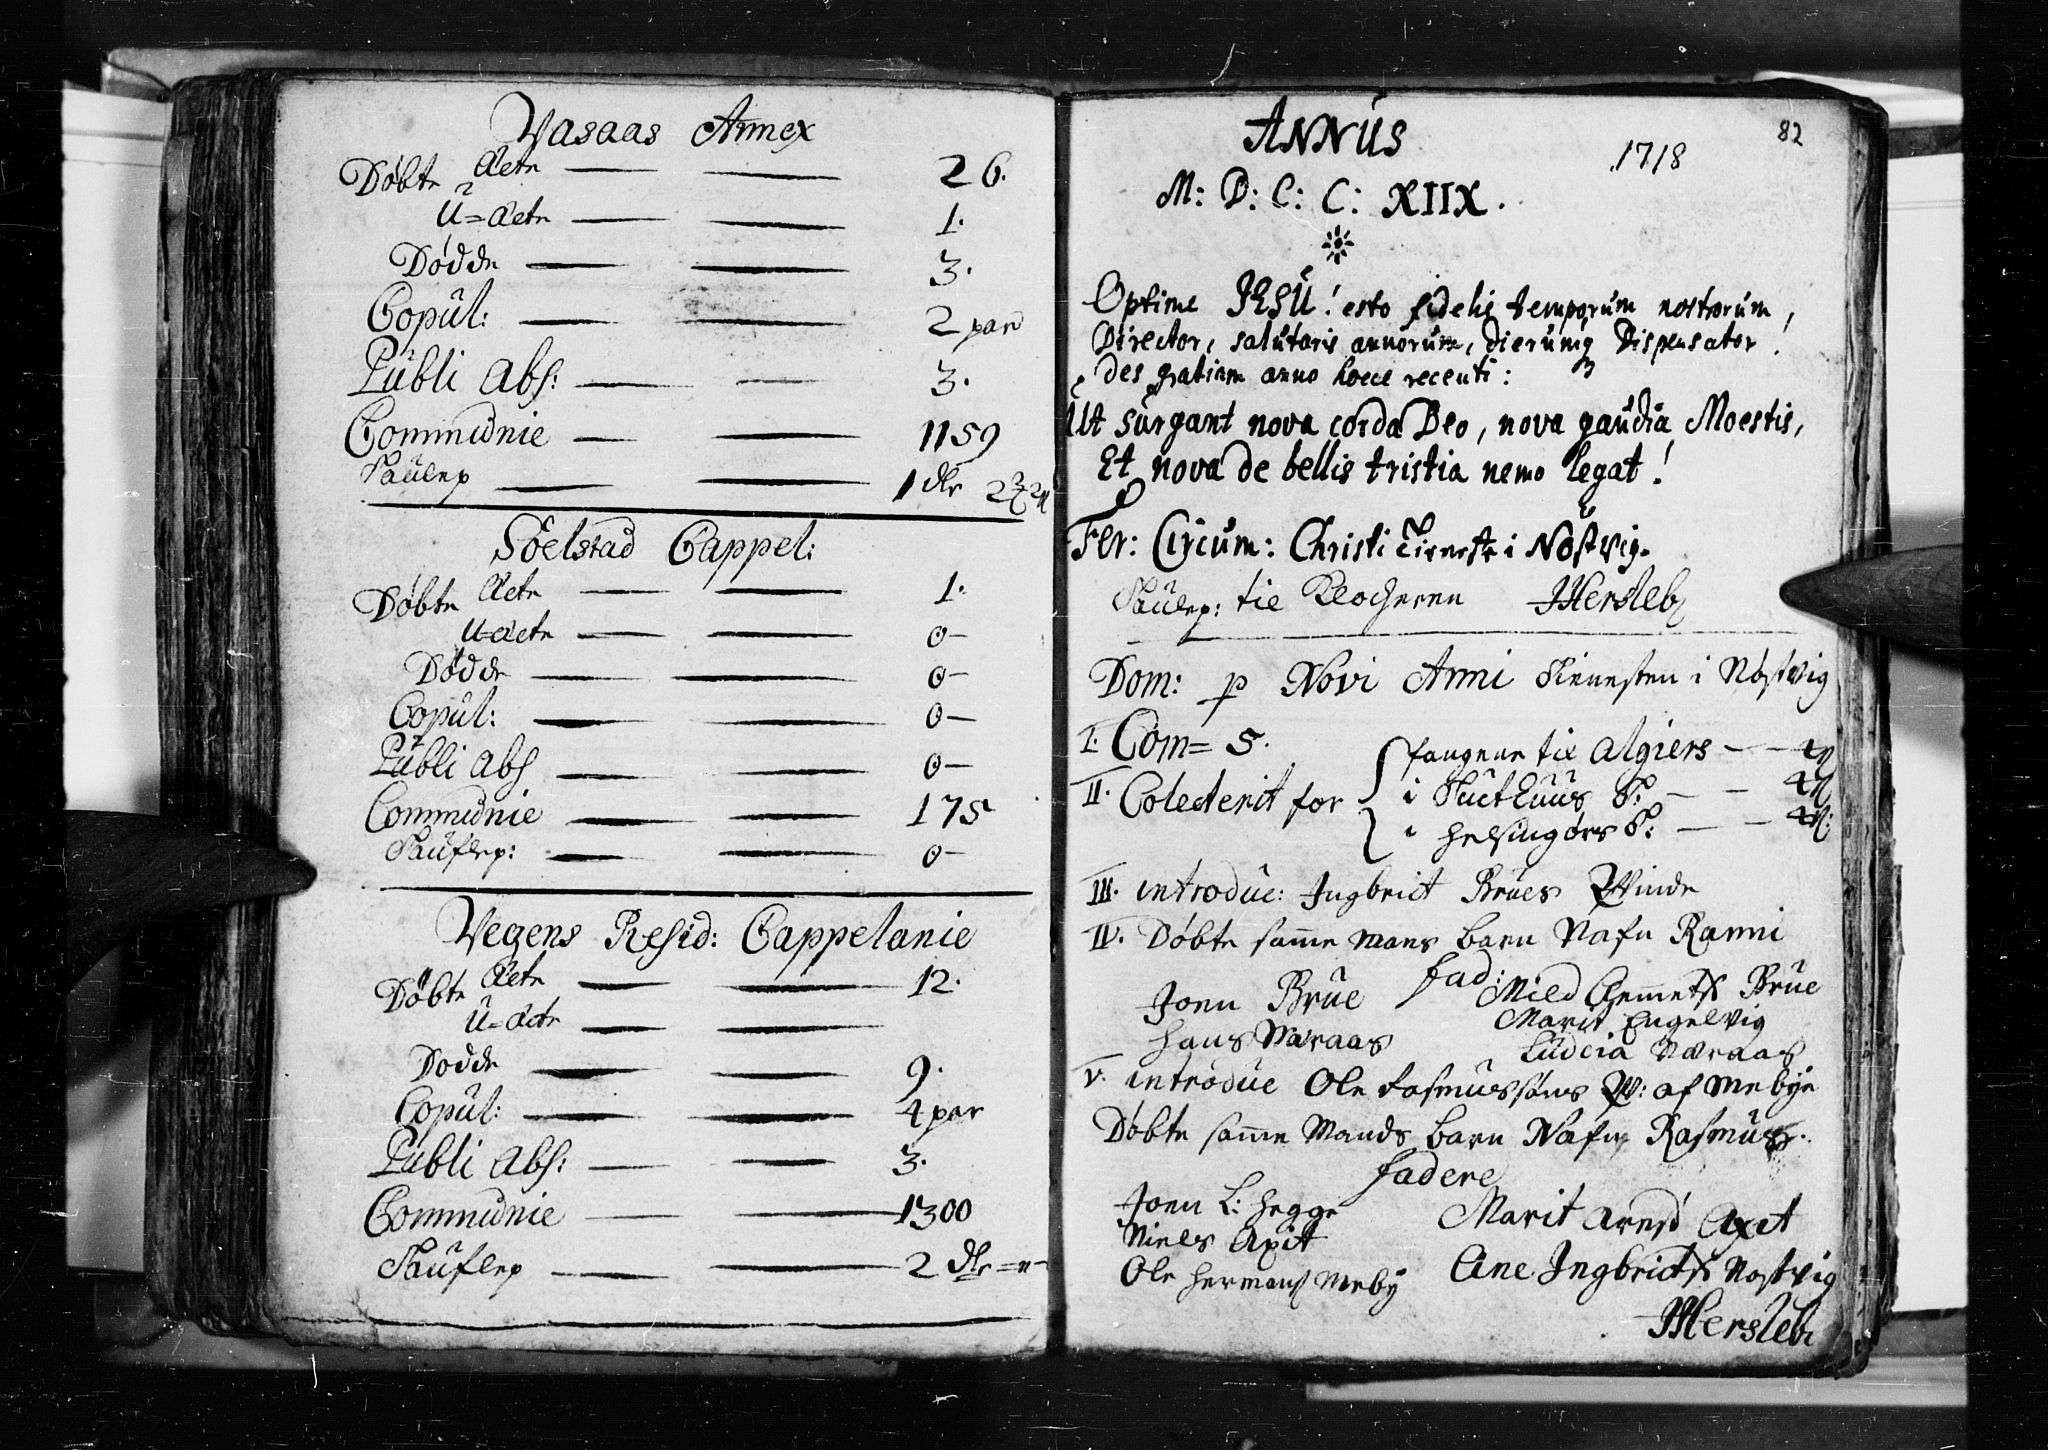 Vasaas Annex
Døbte Ecte — — 26.
U=Ecte — — 1.
Dødde — — 3.
Copul: — — 2 par
Publi Abs: — — 3.
Communie — — 1159
Taulep — — 1 dlr
Soelstad Cappel:
Døbte Ecte — — 1.
U=Ecte — — 0-
Dødde — — 0-
Copul: — — 0-
Publi Abs — — 0-
Communie — — 175
Tauflep: — — 0-
Vegens Resid: Cappelanie
Døbte Ecte — — 12.
U=Ecte — —
Dodde — — 9.
Copul: — — 4 par
Publi Abs: — — 3.
Communie — — 1300
Tauflep — — 2 dlr
82
ANNUS
1718
M: D: C: C: XIIX.
Optime JESU! esto fidelis temporum nostrorum,
Director, salutaris annorum, dierumq Dispensator!
des gratiam anno hocce recenti:
Ut surgant nova corda Deo, nova gaudia Moestis,
Et nova de bellis tristia nemo legat!
Fer: Circum: Christi Tieneste i Nøstvig.
Taulep: til Klocheren JHersleb
Dom: p Novi Anni Tienesten i Nøstvig
I. Com= 5.
II. Colecterit for { fangene til Algiers — —
i — —
i Helsingørs T: — —
III. introduc: Ingbrict Brues Qvinde
IV. Døbte samme mans barn Nafn Ranni
fad:
Joen Brue Mild Clemmets Brue
Hans Næraas Marit Engelvig
Ludcia Næraas
V. introduc Ole Rasmussøns Qv: af Mebye
Døbte samme Mands barn Nafn Rasmus.
fadere
Joen L: Hegge Marit Arnes Axet
Niels Axit
Ole Hermans Meby Ane Ingbricts Nøstvig
JHersleb